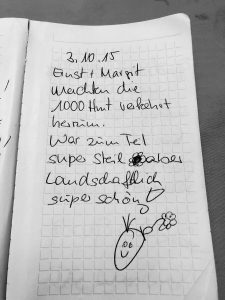 3.10.15
Ernst + Margit
machten die
1000 Hm↑ verkehrt
herum.
War zum Teil
super steil aber
Landschaftlich
super schön!